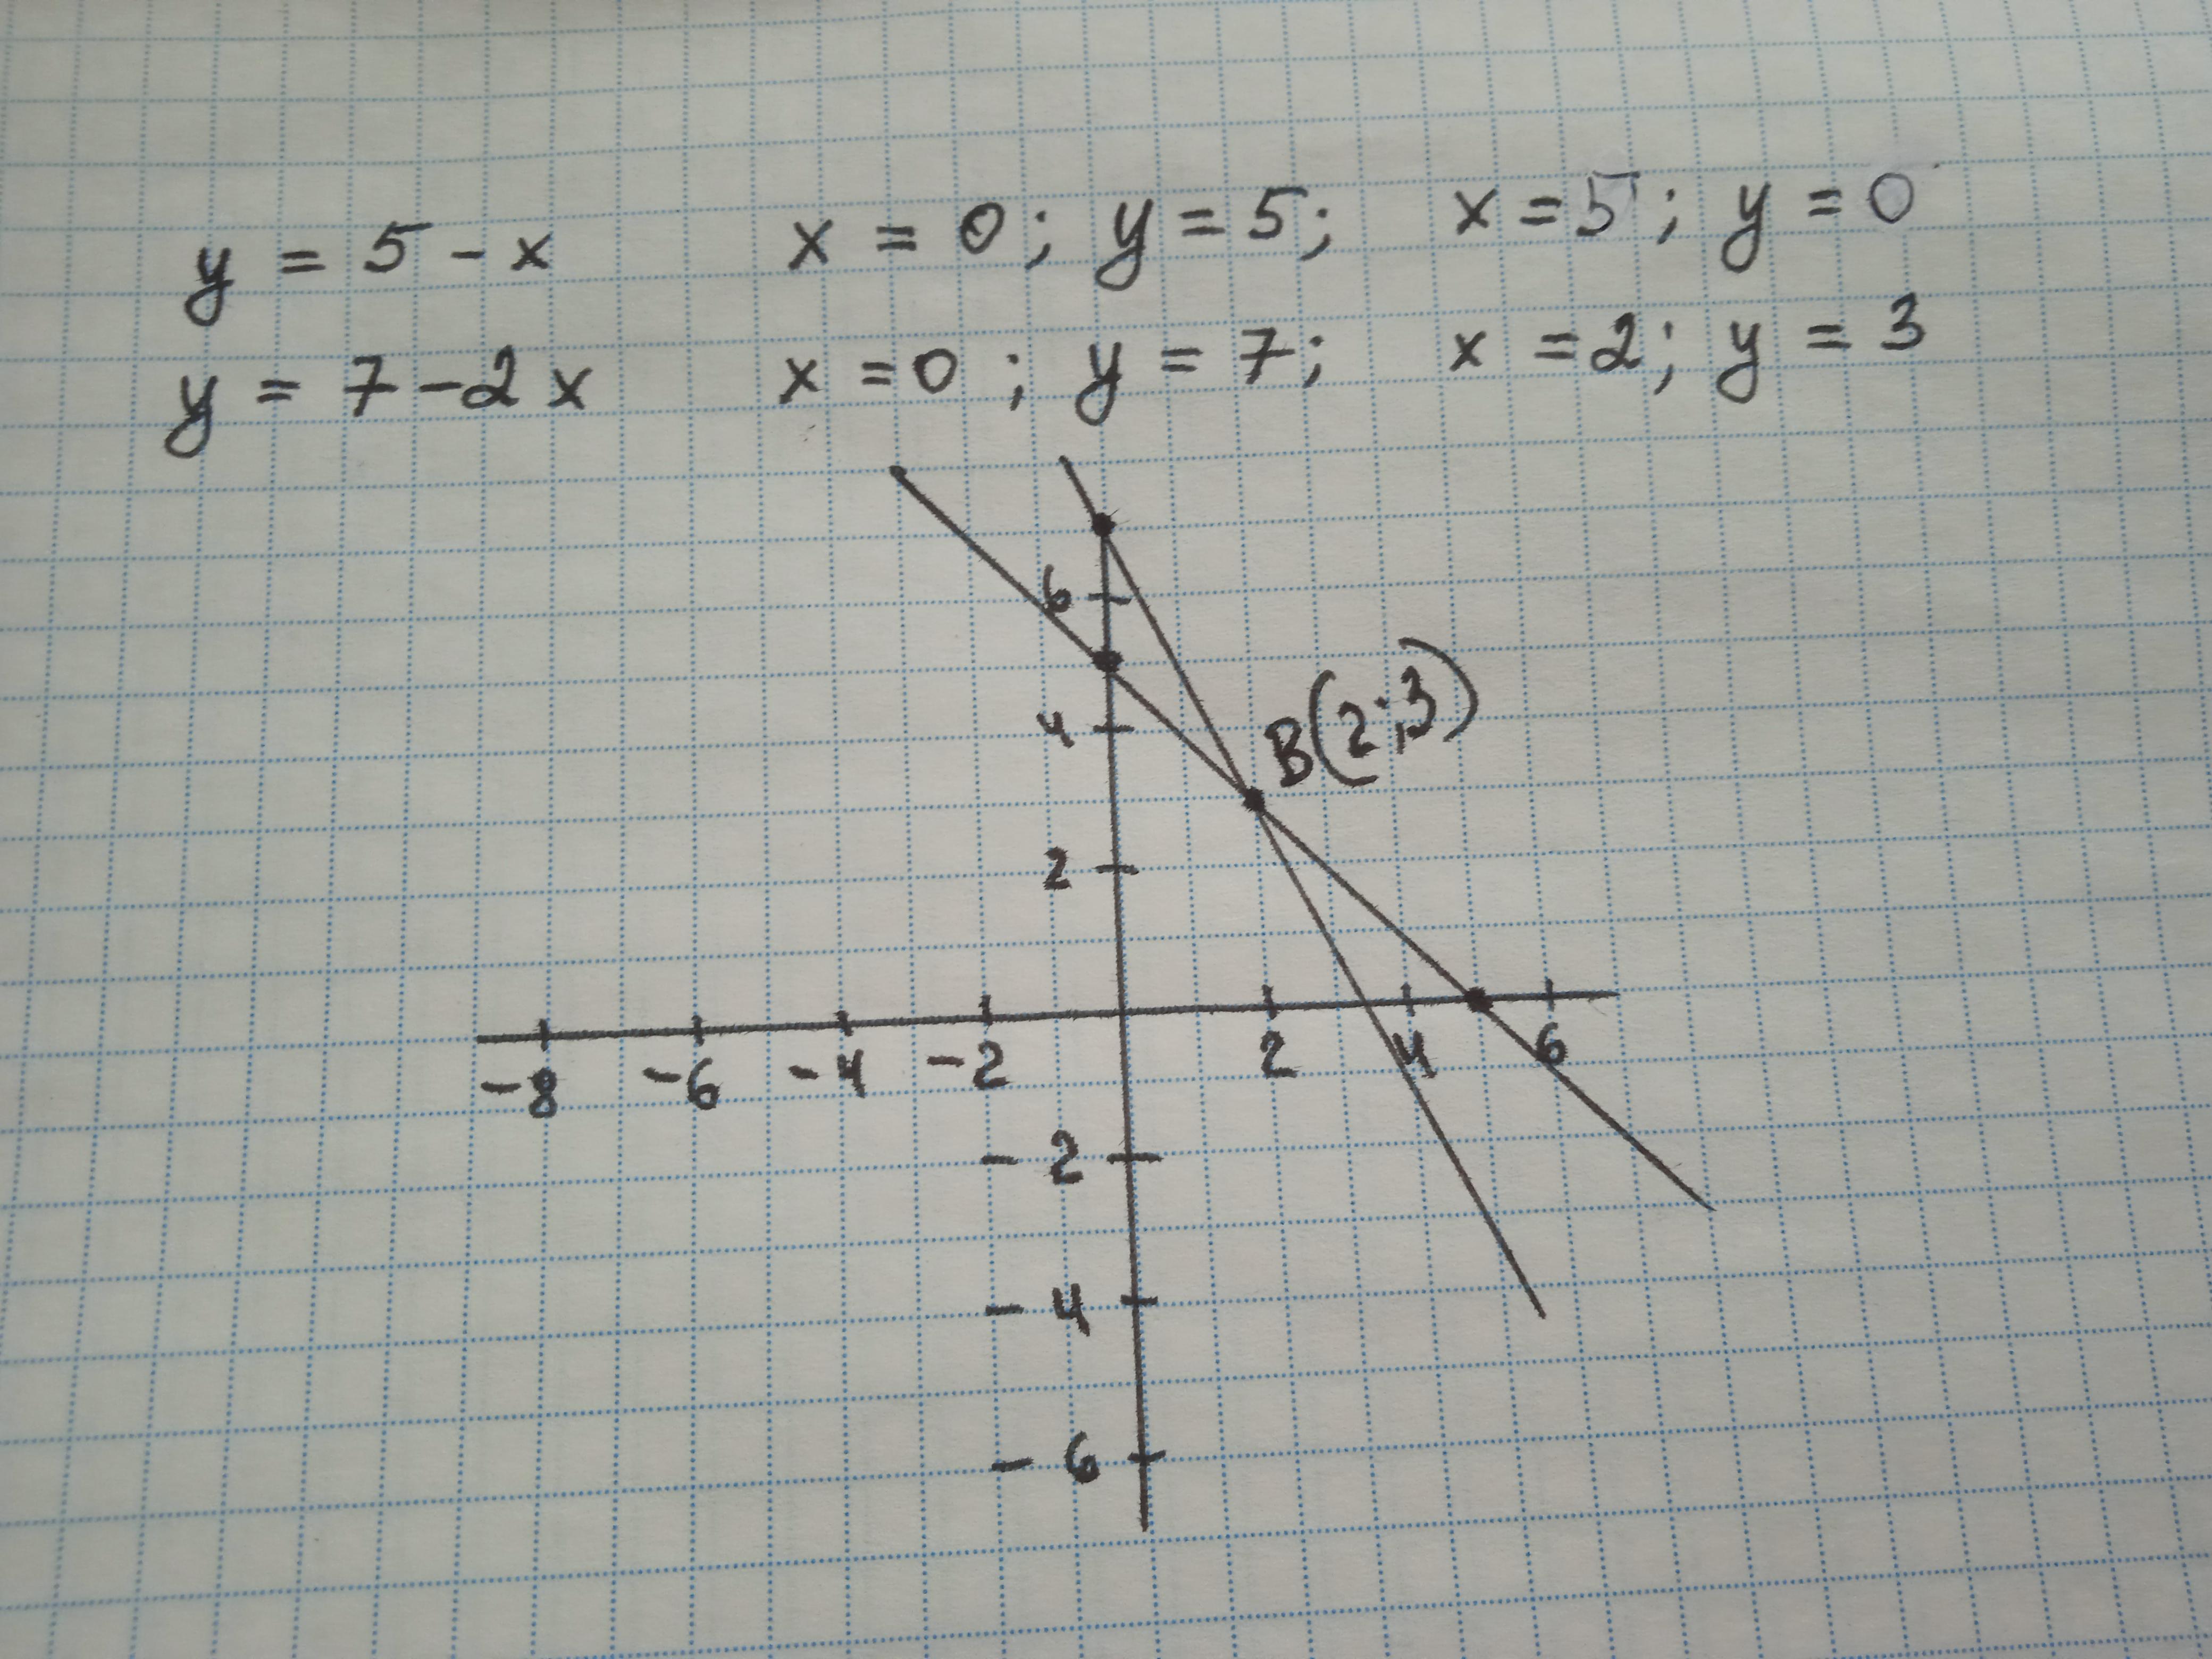 y = 5 - x   x = 0; y = 5;   x = 5; y = 0
y = 7 - 2x   x = 0; y = 7;   x = 2; y = 3
6
4
B(2;3)
2
-8 -6 -4 -2 2 4 6
-2
-4
-6